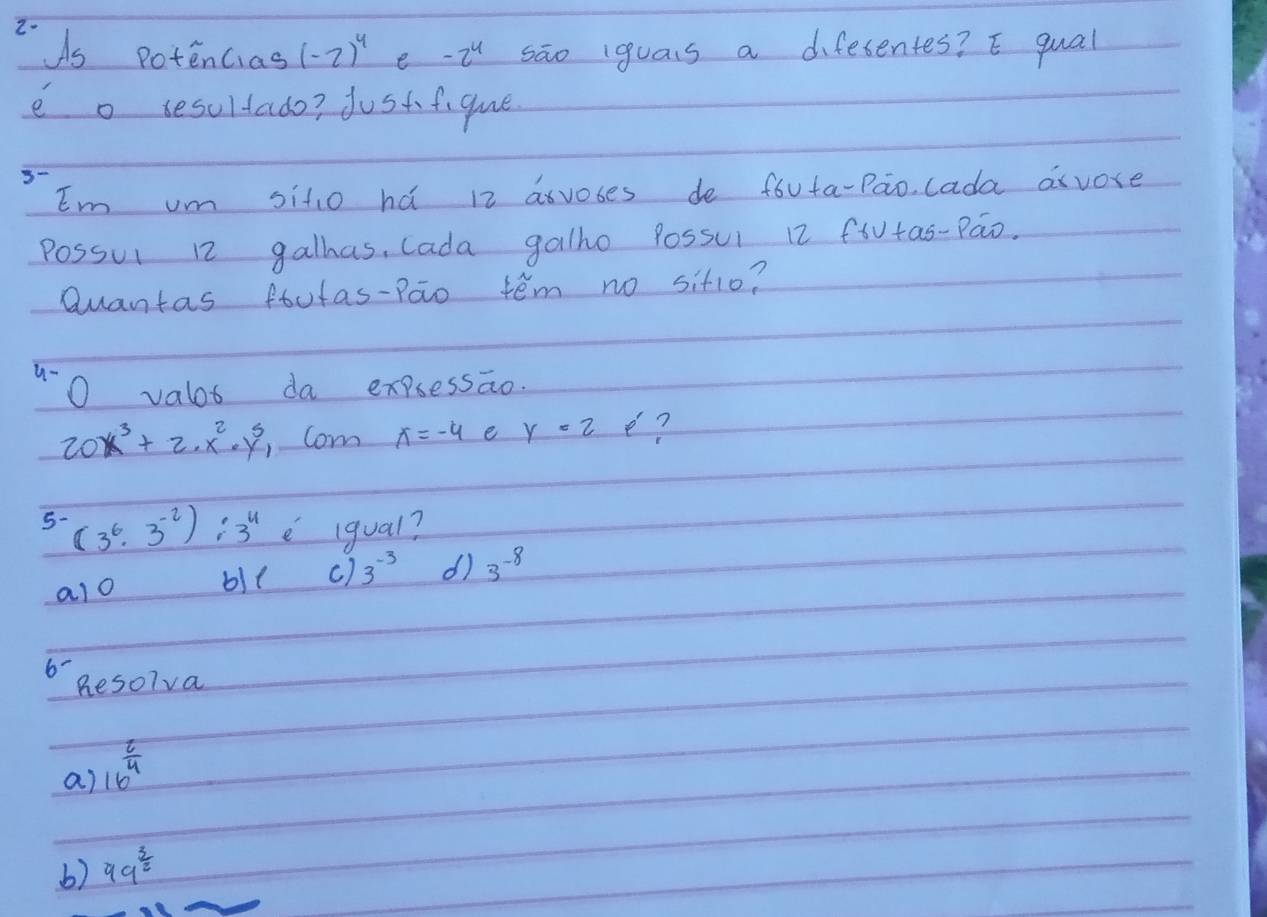 2- As Potências (-2)⁴ e -2⁴ são iguais a diferentes? E qual
é o resultado? Justifique.
3- Em um sítio há 12 árvores de fruta-Pão. Cada árvore
Possui 12 galhas. Cada galho Possui 12 frutas-Pão.
Quantas frutas-Pão têm no sítio?
4- O valor da expressão.
20x³ + 2.x².y⁵, com x = -4 e y = 2 é?
5- (3⁶. 3⁻²) : 3⁴ é igual?
a) 0 b) 1 c) 3⁻³ d) 3⁻⁸
6- Resolva
a) 16^(2/4)
b) 49^(3/2)